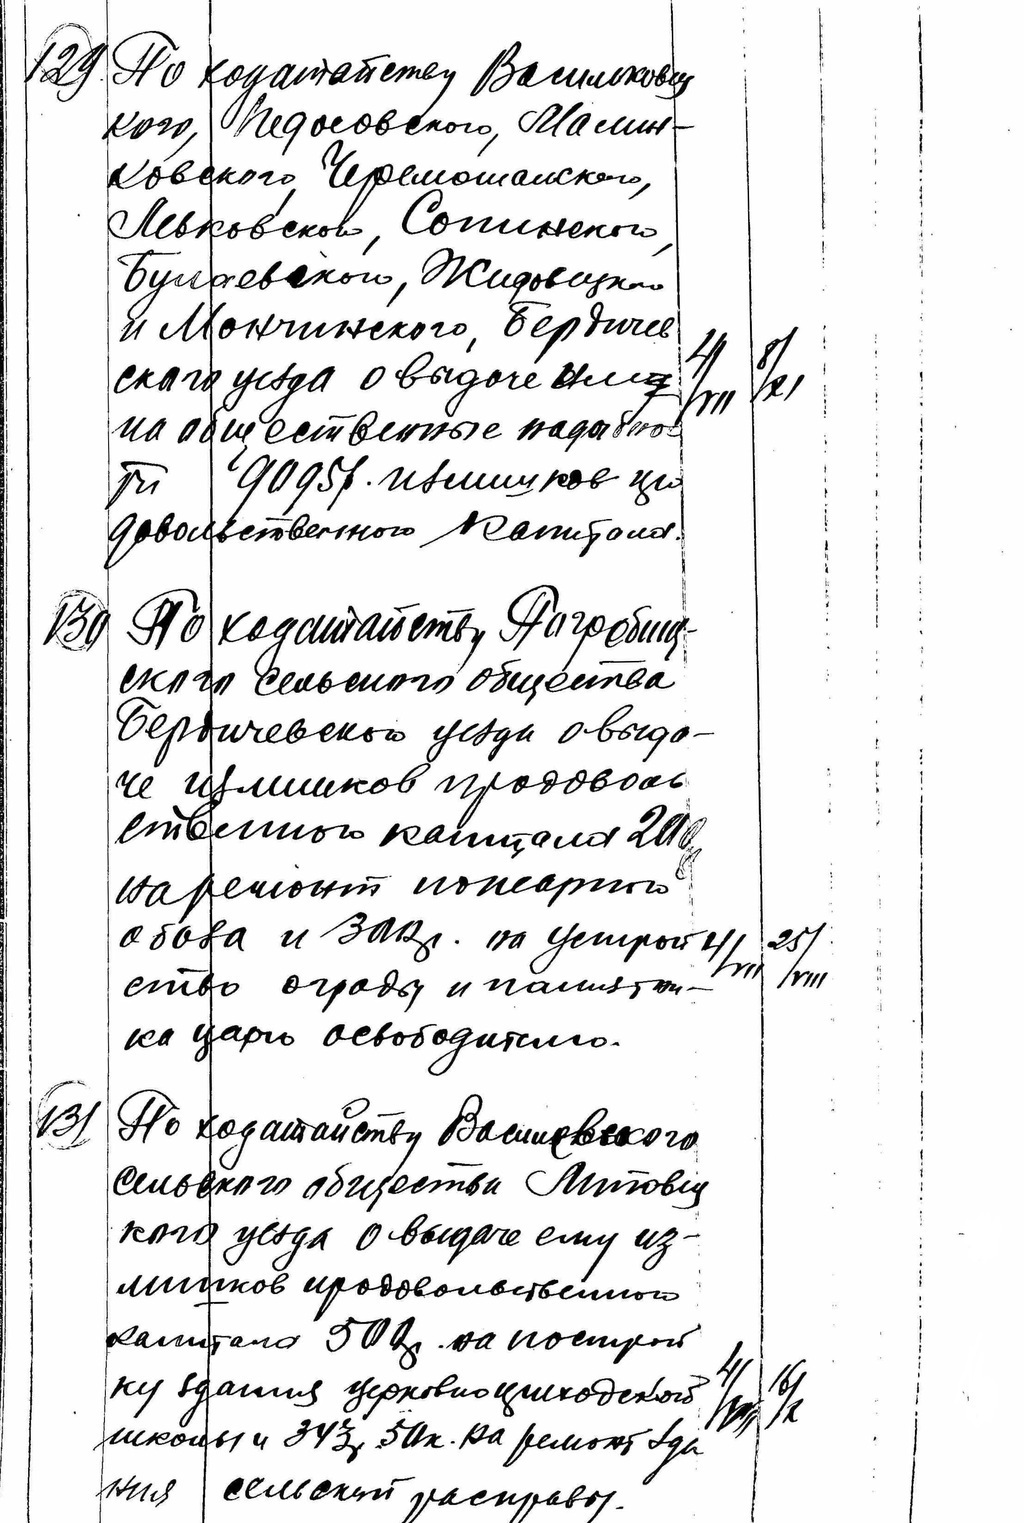 129. По ходатайству Васильковец
кого, Педосовского, Малин-
ковского, Черемошанского,
Левковского, Сопинского,
Булаевского, Жидовецкого
и Мончинского, Бердичев
скаго уезда о выдаче им 4/VII 8/XI
на общественные надобнос
ти 9095р. излишков про
довольственного капитала.
130 По ходатайству Погребищ-
ского сельского общества
Бердичевского уезда о выда-
че излишков продоволь
ственного капитала 200р
на ремонт пожарного
обоза и 300р. на устрой 4/VII 25/VIII
ство ограды и памятни-
ка царю освободителю.
131 По ходатайству Василевского
сельского общества Липовец
кого уезда о выдаче ему из-
лишков продовольственного
капитала 500р. на построй
ку здания церковно приходской 4/VIII 16/X
школы и 343р 50к. на ремонт зда
ния сельской расправы.